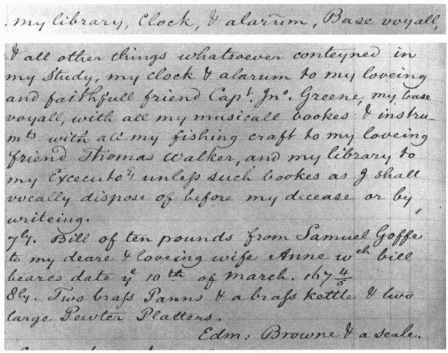 my library, Clock, & alarum, Base voyall,
& all other things whatsoever conteyned in
my Study, my clock & alarum to my loveing
and faithfull friend Capt. Jno. Greene, my base
voyall, with all my musicall bookes & instru-
mts with all my fishing craft to my loveing
friend Thomas Walker, and my library to
my Executors unless such bookes as I shall
vocally dispose of before my decease or by
writeing.
7ly. Bill of ten pounds from Samuel Goffe
to my deare & loveing wife Anne wch bill
beares date ye 10th of March. 167 4/5
8ly. Two brass Panns & a brass kettle & two
large Pewter Platters.
Edm: Browne & a seale.